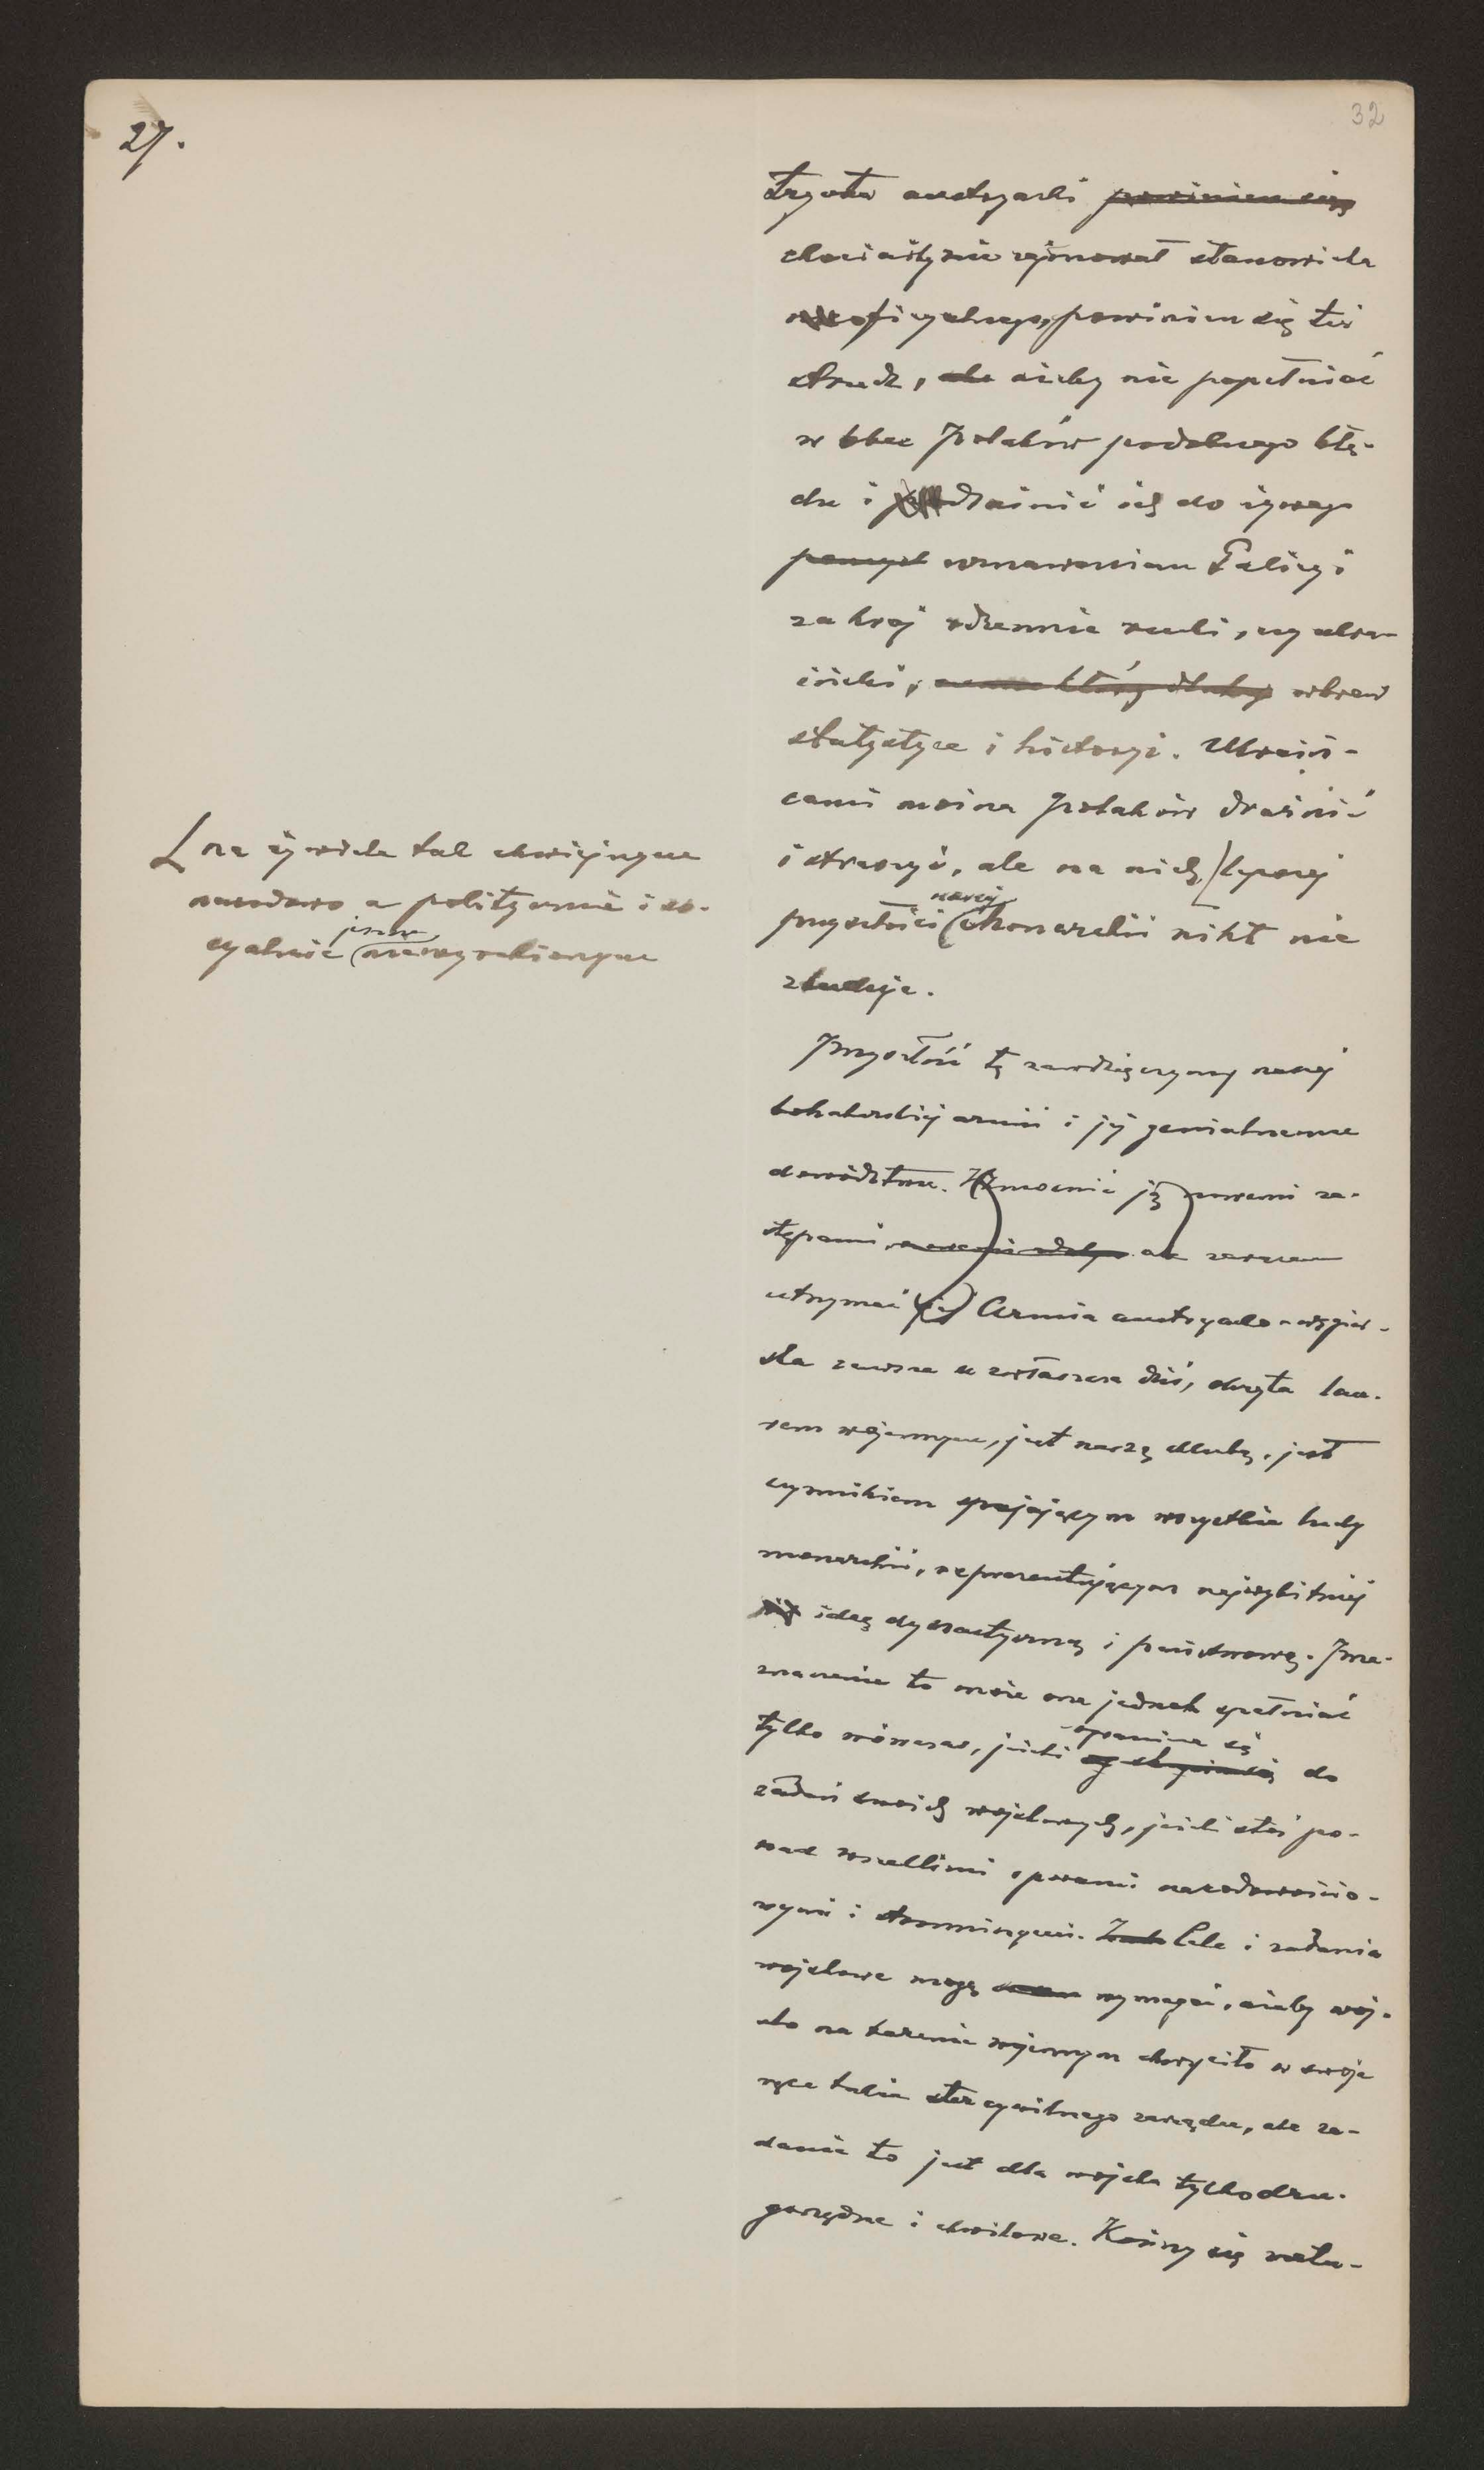 27.
32
tryota austryacki powinien się
chociażby nie zajmował stanowiska
oficyalnego, powinien się też
strzedz, ażeby nie popełniać
w obec Polaków podobnego błę-
du i drażnić ich do żywego
pomysł uznawaniem Galicyi
za kraj rdzennie ruski, czy ukra-
iński, wbrew
statystyce i historyi. Ukraiń-
cami można Polaków drażnić
i straszyć, ale na nich, lepszej
przyszłości naszej monarchii nikt nie
zbuduje.
L na żywiole tak chwiejnym
narodowo a politycznie i so-
cyalnie jeszcze niewyrobionym
Przyszłość tę zawdzięczymy naszej
bohaterskiej armii i jej genialnemu
dowództwu. Wzmocnić ją nowemi za-
stępami ale zarazem
utrzymać ją Armia austryacko-węgier-
ska zawsze a zwłaszcza dziś, okryta lau-
rem wojennym, jest naszą chlubą, jest
czynnikiem spajającym wszystkie ludy
monarchii, reprezentującym najwybitniej
ideę dynastyczną i państwową. Prze-
znaczenie to może ona jednak spełniać
tylko wówczas, jeżeli ograniczy się do
zadań swoich wojskowych, jeżeli stoi po-
nad wszelkimi sporami narodowościo-
wymi i stronniczymi. Cele i zadania
wojskowe mogą wymagać, ażeby woj-
sko na terenie wojennym chwyciło w swoje
ręce także ster cywilnego zarządu, ale za-
danie to jest dla wojska tylko dru-
gorzędne i chwilowe. Kończy się natu-